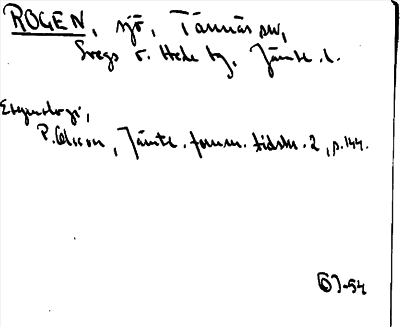 ROGEN, sjö, Tännäs sn,
Svegs o. Hede tg, Jämtl. l.
Etymologi,
P. Olsson, Jämtl. fornm. tidskr. 2, p. 144.
-54